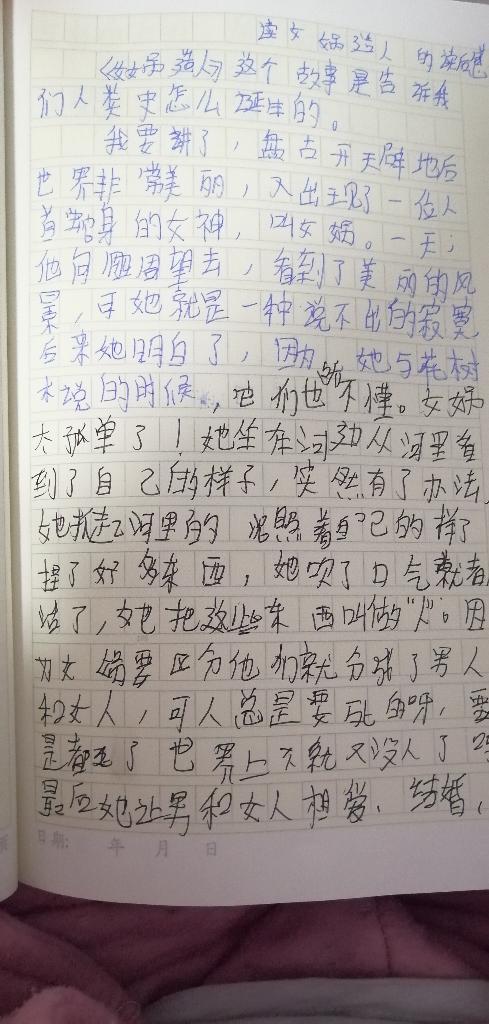 读女娲造人的读后感
《女娲造人》这个故事是告诉我
们人类史怎么诞生的。
我要讲了，盘古开天辟地后
世界非常美丽，又出现了一位人
首蛇身的女神，叫女娲。一天，
他向四周望去，看到了美丽的风
景，可她就是一种说不出的寂寞
后来她明白了，因为她与花树
木说的时候，它们也听不懂。女娲
太孤单了！她坐在河边从河里看
到了自己的样子，突然有了办法
她抓起河里的泥照着自己的样子
捏了好多东西，她吹了口气就都
活了，她把这些东西叫做"人"。因
为女娲要区分他们就分成了男人
和女人，可人总是要死的呀，要
是都死了世界上不就又没人了吗
最后她让男和女人相爱、结婚，
日期： 年 月 日